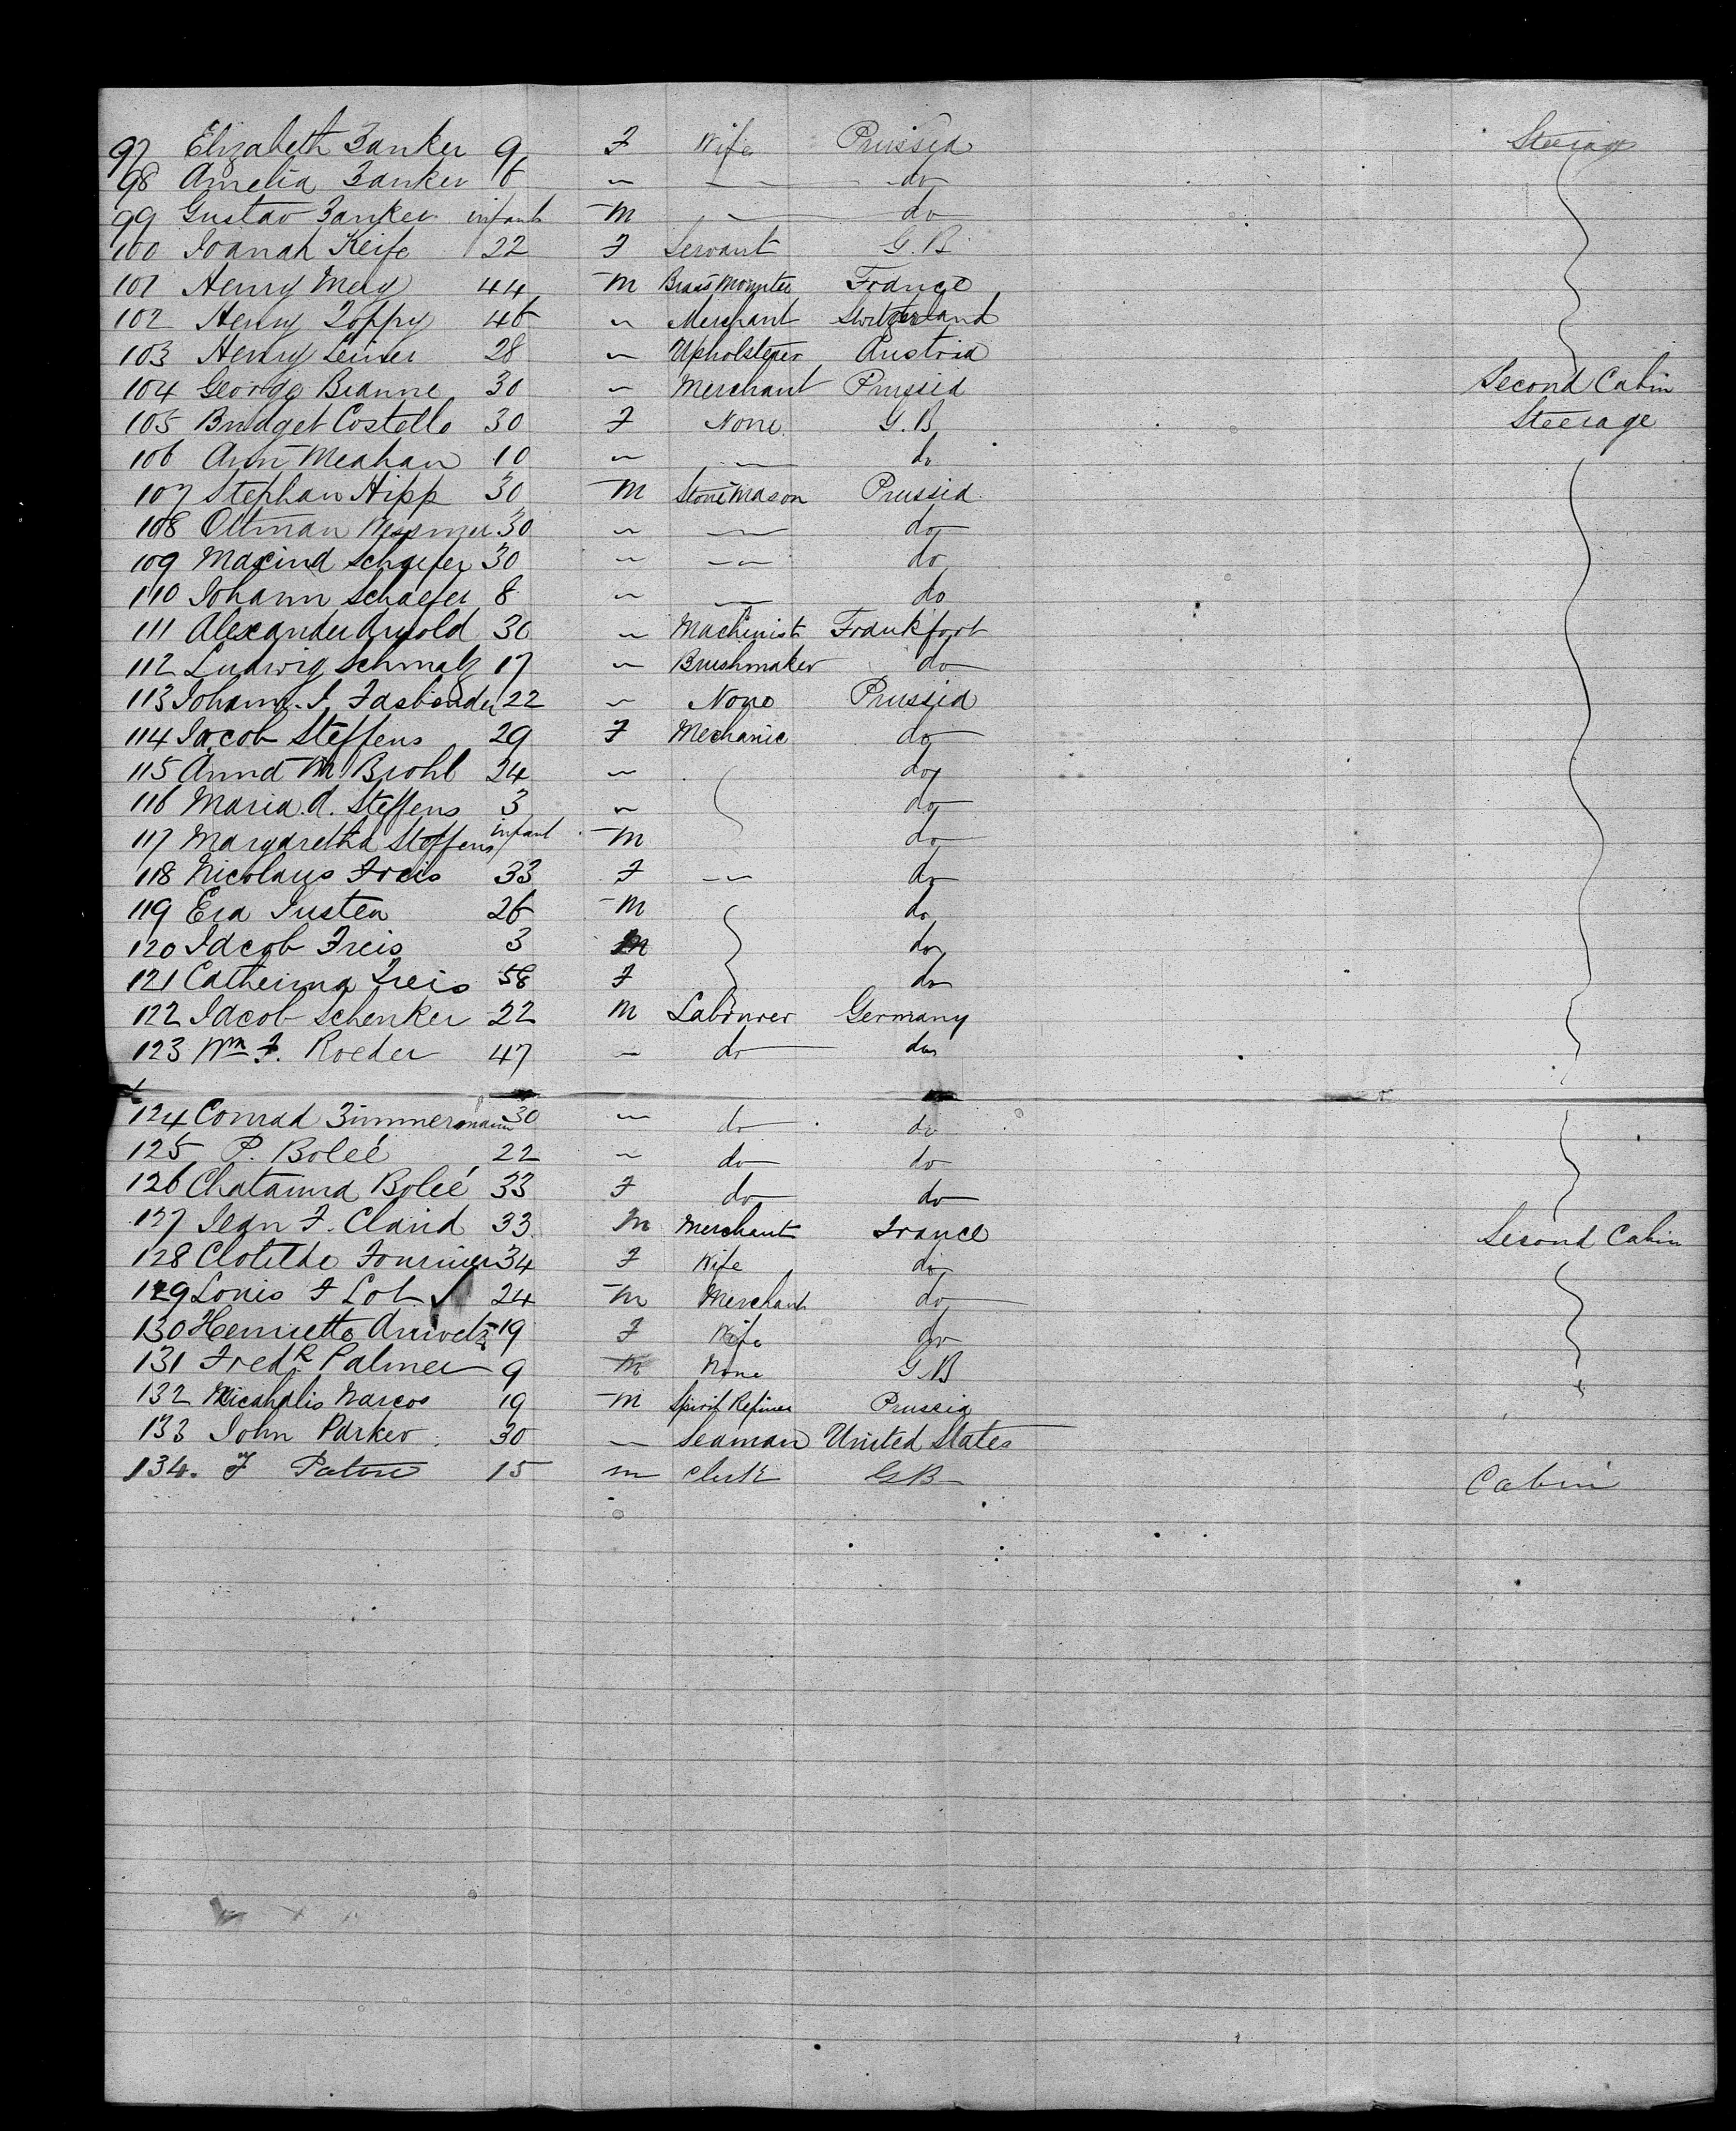 97 Elizabeth Zanker 9 F Wife Prussia Steerage
98 Amelia Zanker 6 " — do
99 Gustav Zanker infant M — do
100 Joanah Keife 22 F Servant G.B.
101 Henry Mery 44 M Brass Mounter France
102 Henry Zoppy 46 " Merchant Switzerland
103 Henry Leiner 28 " Upholsterer Austria
104 George Bianne 30 " Merchant Prussia Second Cabin
105 Bridget Costello 30 F None G.B. Steerage
106 Ann Meahan 10 " — do
107 Stephan Hipp 30 M Stone Mason Prussia
108 Ottman 30 " — do
109 Maxind Schaefer 30 " — do
110 Johann Schaefer 8 " — do
111 Alexander Arnold 36 " Machinist Frankfort
112 Ludwig Schmalz 17 " Brushmaker do
113 Johann J. Fasbender 22 " None Prussia
114 Jacob Steffens 29 F Mechanic do
115 Anna M Brohl 24 " do
116 Maria A. Steffens 3 " do
117 Margaretha Steffens infant M do
118 Nicolaus Freis 33 F — do
119 Eva Justen 26 M do
120 Jacob Freis 3 M do
121 Catherina Freis 58 F do
122 Jacob Schenker 22 M Labourer Germany
123 Wm F. Roeder 47 — do do
124 Conrad Zimmermann 30 " do do
125 P. Boleé 22 " do do
126 Chatarina Boleé 33 F do do
127 Jean F. Claid 33 M Merchant France Second Cabin
128 Clotilde Fournier 34 F Wife do
129 Louis F Lot 24 M Merchant do
130 Henrietta 19 F Wife do
131 Fredk Palmer 9 M None G.B
132 Micahalis Marcos 19 M Spirit Refiner Prussia
133 John Parker 30 — Seaman United States
134. F Paton 15 m Clerk GB Cabin